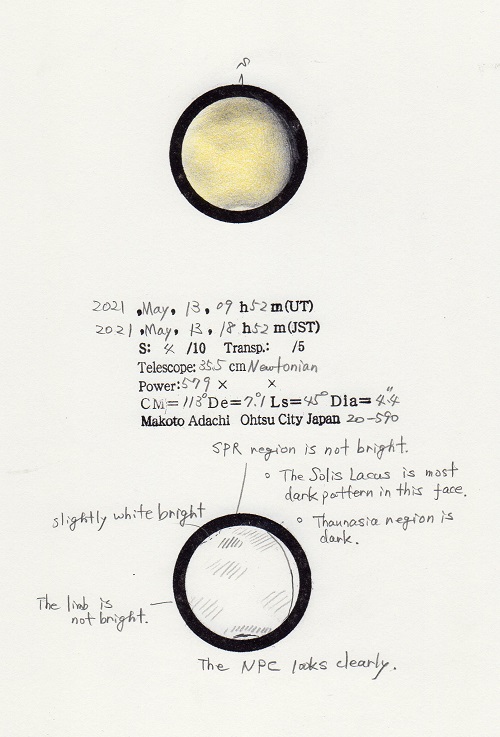 S
2021 May. 13. 09 h52 m(UT)
2021 May. 13. 18 h52 m(JST)
S: 4 /10 Transp.: /5
Telescope: 35.5 cm Newtonian
Power: 579 × ×
CM=113° De=7.1 Ls=45° Dia=4.4"
Makoto Adachi Ohtsu City Japan 20-590
SPR region is not bright.
○ The Solis Lacus is most
dark pattern in this face.
slightly white bright
○ Thaunasia region is
dark.
The limb is
not bright.
The NPC looks clearly.